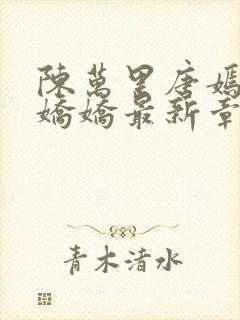 陳萬里唐嫣
嬌嬌最新章
青木清水